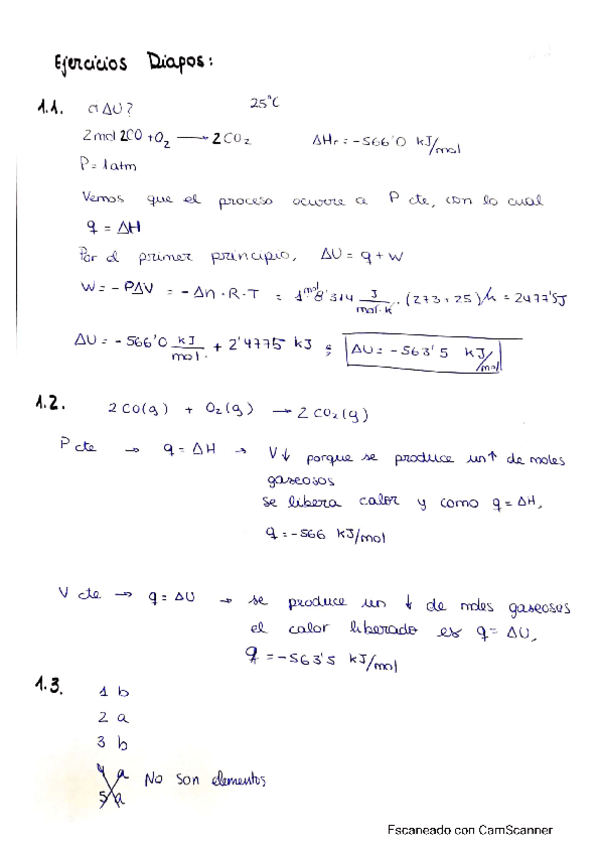 Ejercicios Diapos:
1.1. a ΔU? 25°C
2mol 2CO + O₂ ⟶ 2CO₂ ΔHr = -566'0 kJ/mol
P = 1atm
Vemos que el proceso ocurre a P cte, con lo cual
q = ΔH
Por el primer principio, ΔU = q + W
W = - PΔV = - Δn · R · T = 1 mol 8'314 J/mol·K · (273 + 25) K = 2477'5J
ΔU = - 566'0 kJ/mol. + 2'4775 kJ ; ΔU = - 563'5 kJ/mol
1.2. 2 CO(g) + O₂(g) → 2 CO₂(g)
P cte → q = ΔH → V↓ porque se produce un ↑ de moles
gaseosos
se libera calor y como q = ΔH,
q = -566 kJ/mol
V cte → q = ΔU → se produce un ↓ de moles gaseosos
el calor liberado es q = ΔU,
q = -563'5 kJ/mol
1.3. 1 b
2 a
3 b
4 a No son elementos
5 a
Escaneado con CamScanner